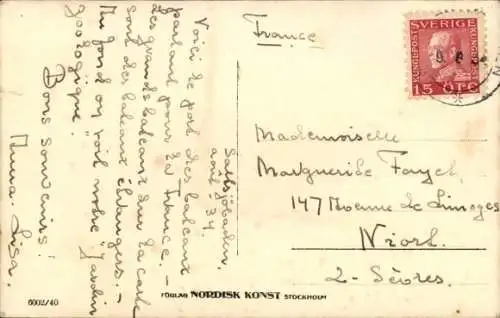 Saltsjöbaden,
août - 34.
Voici le port des bateaux
partant pour la France. -
Les grands bateaux sur la carte
sont des bateaux étrangers. -
Au fond on voit notre "Jardin
zoologique".
Bons souvenirs!
Anna-Lisa.
France
SVERIGE
KUNGL·POST
KUNGL·POST
15 ÖRE
Mademoiselle
Marguerite Fayet,
147 Avenue de Limoges
Niort.
2 - Sèvres.
6002/40
FÖRLAG NORDISK KONST STOCKHOLM